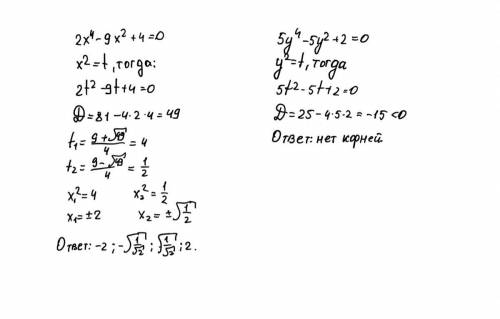 2x⁴-9x²+4=0
x²=t, тогда:
2t²-9t+4=0
D=81-4·2·4=49
t₁=(9+√49)/4=4
t₂=(9-√49)/4=1/2
x₁²=4 x₂²=1/2
x₁=±2 x₂=±√(1/2)
Ответ: -2; -√(1/√2); √(1/√2); 2.
5y⁴-5y²+2=0
y²=t, тогда
5t²-5t+2=0
D=25-4·5·2=-15<0
Ответ: нет корней